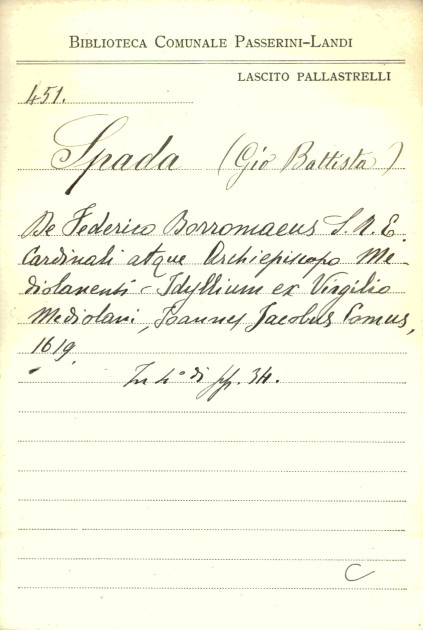 BIBLIOTECA COMUNALE PASSERINI-LANDI
LASCITO PALLASTRELLI
451.
Spada (Gio Battista)
De Federico Borromaeus S. R. E.
Cardinali atque Archiepiscopo Me-
diolanensi - Idyllium ex Virgilio
Mediolani, Joannes Jacobus Comus,
1619.
In 4° di pp. 34.
C